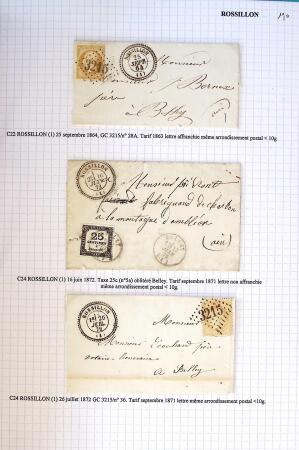 ROSSILLON
3215
ROSSILLON
25
SEPT
64
(1)
Monsieur
Bernex
père
à Belley
(ain)
C22 ROSSILLON (1) 25 septembre 1864, GC 3215/n° 28A. Tarif 1863 lettre affranchie même arrondissement postal < 10g.
ROSSILLON
16
JUIN
72
(1)
Monsieur
fabriquand de charbon
a la montagne d'ambléon
(ain)
25
CENTIMES
C24 ROSSILLON (1) 16 juin 1872. Taxe 25c (n°5a) oblitéré Belley. Tarif septembre 1871 lettre non affranchie
même arrondissement postal < 10g.
ROSSILLON
26
JUIL
72
(1)
3215
Monsieur
Monsieur
père
notaire honoraire
a Belley
C24 ROSSILLON (1) 26 juillet 1872 GC 3215/n° 36. Tarif septembre 1871 lettre même arrondissement postal <10g.